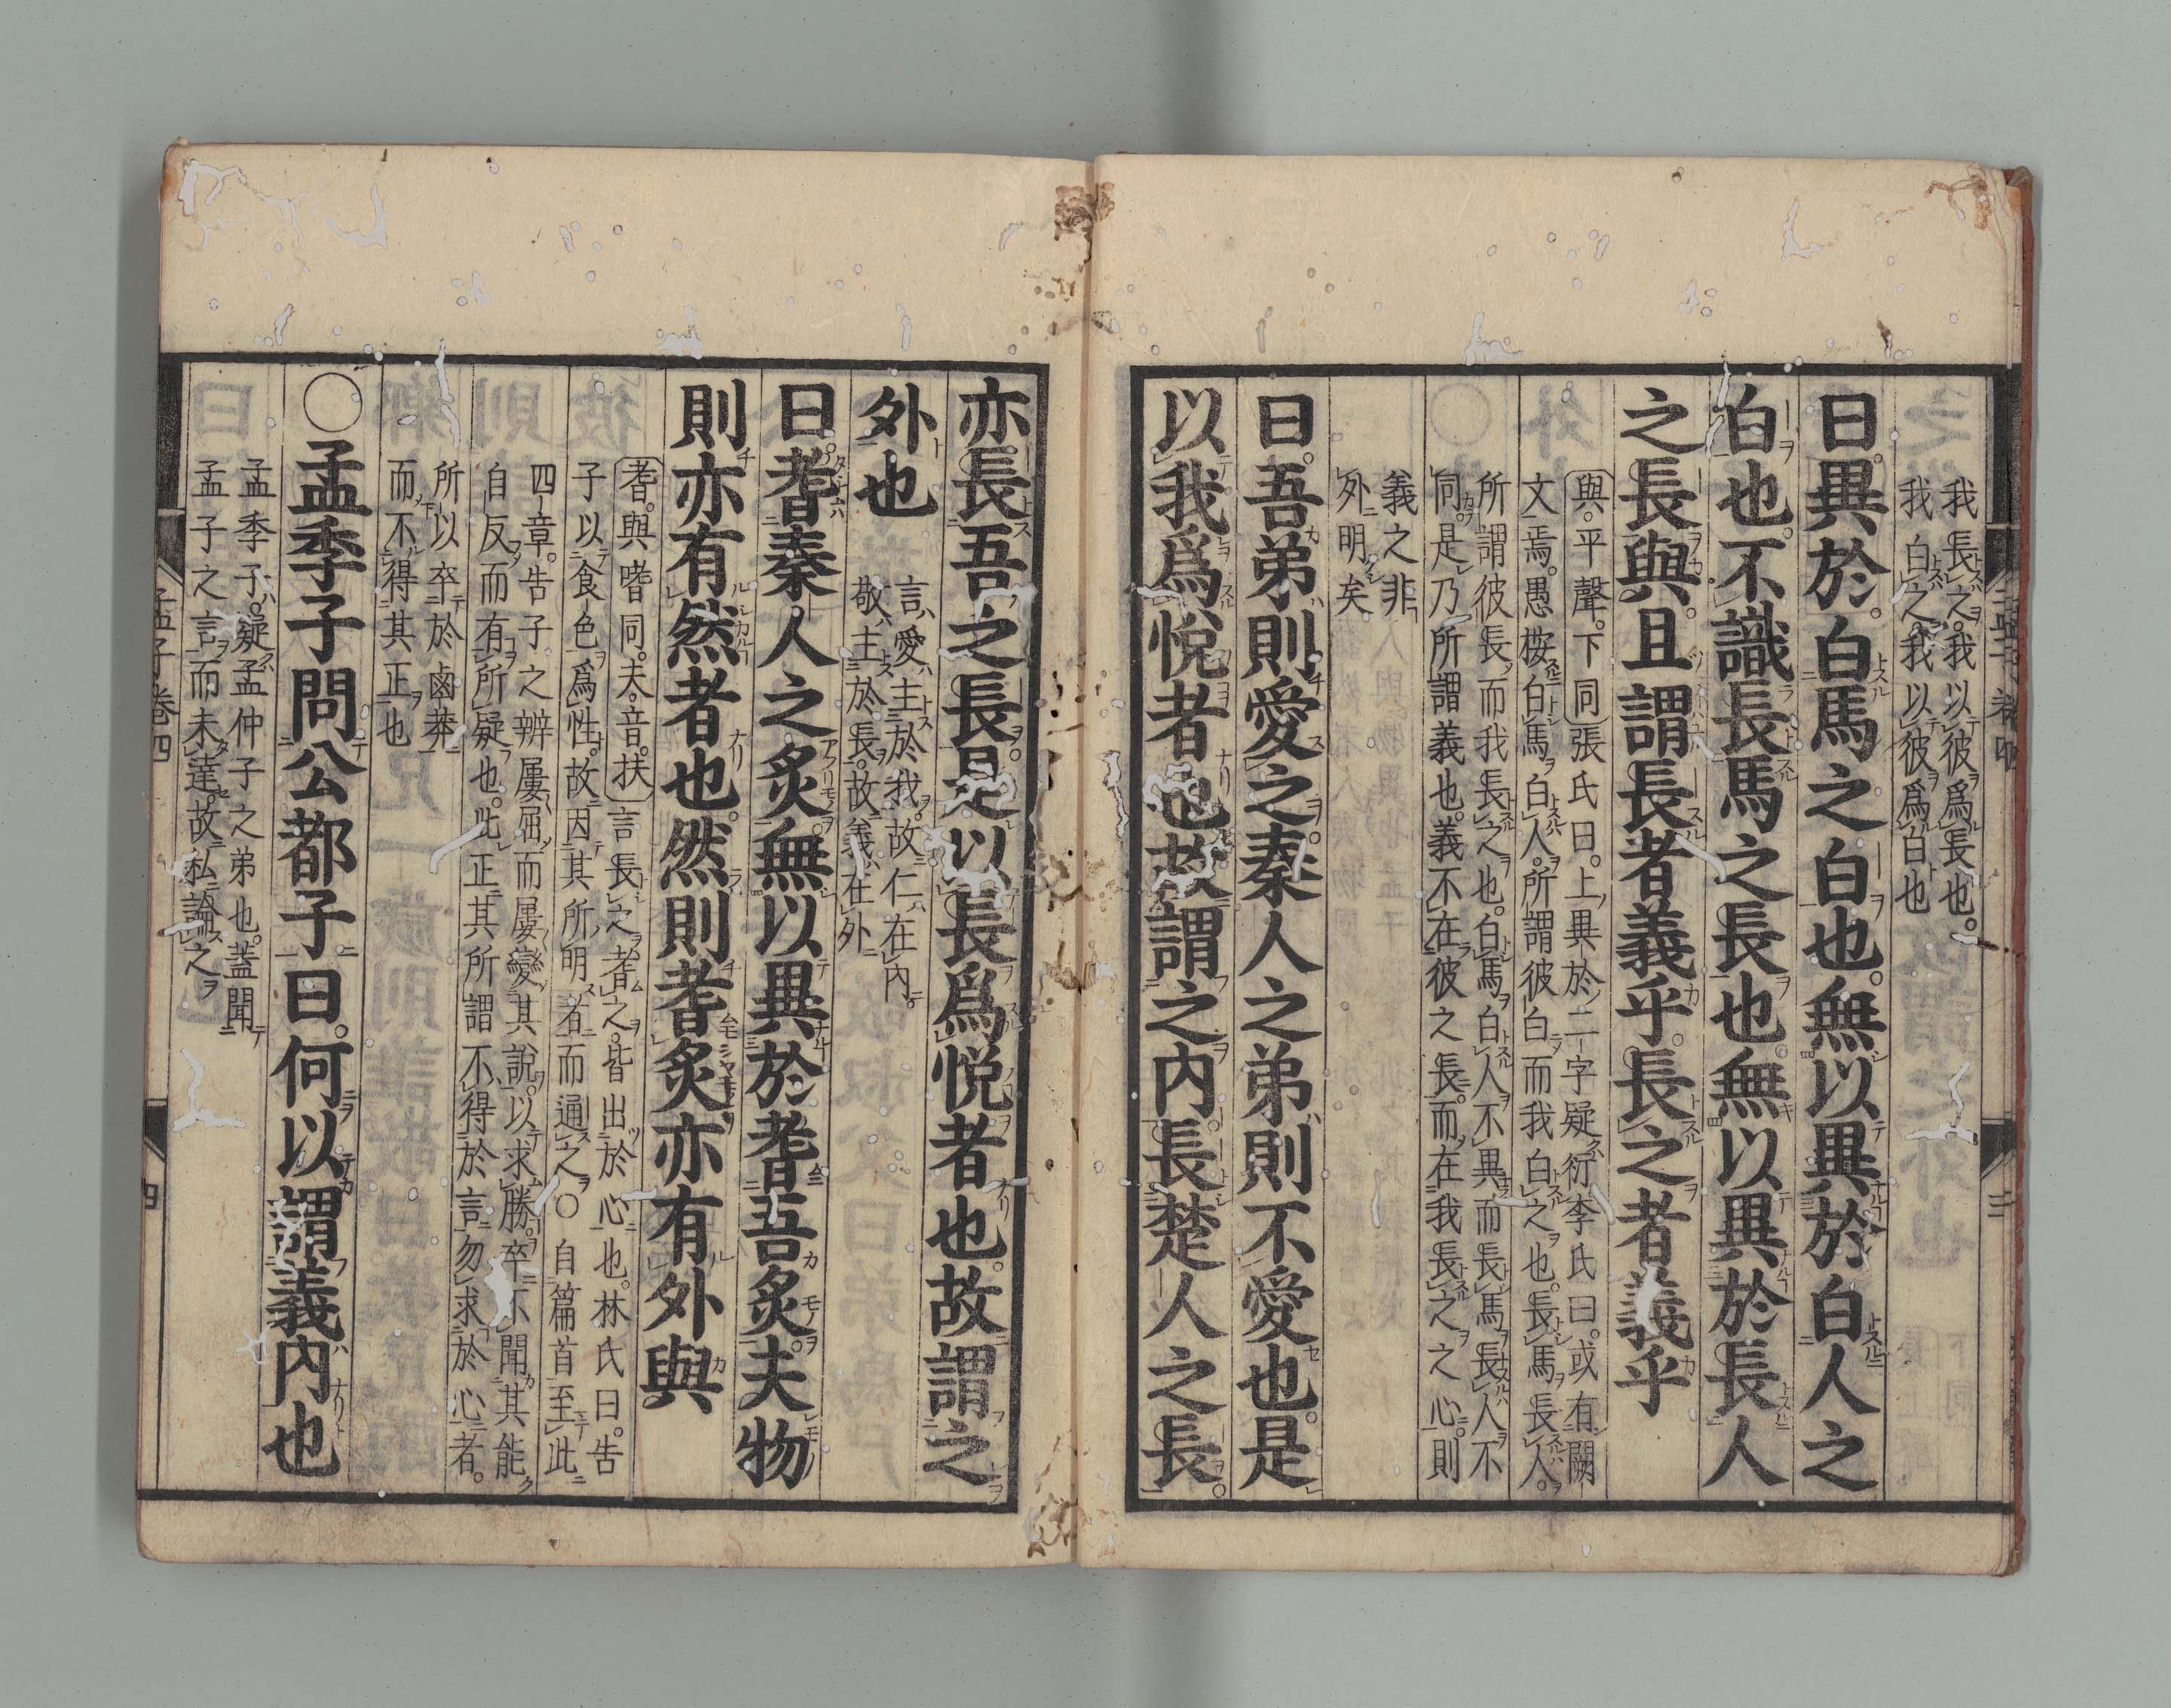 我長之我以彼爲長也。
我白之我以彼爲白也
曰異於白馬之白也無以異於白人之
白也不識長馬之長也無以異於長人
之長與且謂長者義乎長之者義乎
與平聲下同張氏曰上異於二字疑衍李氏曰或有闕
文焉愚按白馬白人所謂彼白而我白之也長馬長人
所謂彼長而我長之也白馬白人不異而長馬長人不
同是乃所謂義也義不在彼之長而在我長之之心則
義之非
外明矣
曰吾弟則愛之秦人之弟則不愛也是
以我爲悅者也故謂之内長楚人之長
亦長吾之長是以長爲悅者也故謂之
外也
言愛主於我故仁在内
敬主於長故義在外
曰耆秦人之炙無以異於耆吾炙夫物
則亦有然者也然則耆炙亦有外與
耆與嗜同夫音扶言長之耆之皆出於心也林氏曰告
子以食色爲性故因其所明者而通之○自篇首至此
四章告子之辨屢屈而屢變其說以求勝卒不聞其能
自反而有所疑也此正其所謂不得於言勿求於心者
所以卒於鹵莽
而不得其正也
○孟季子問公都子曰何以謂義内也
孟季子疑孟仲子之弟也蓋聞
孟子之言而未達故私論之
孟子卷四
四